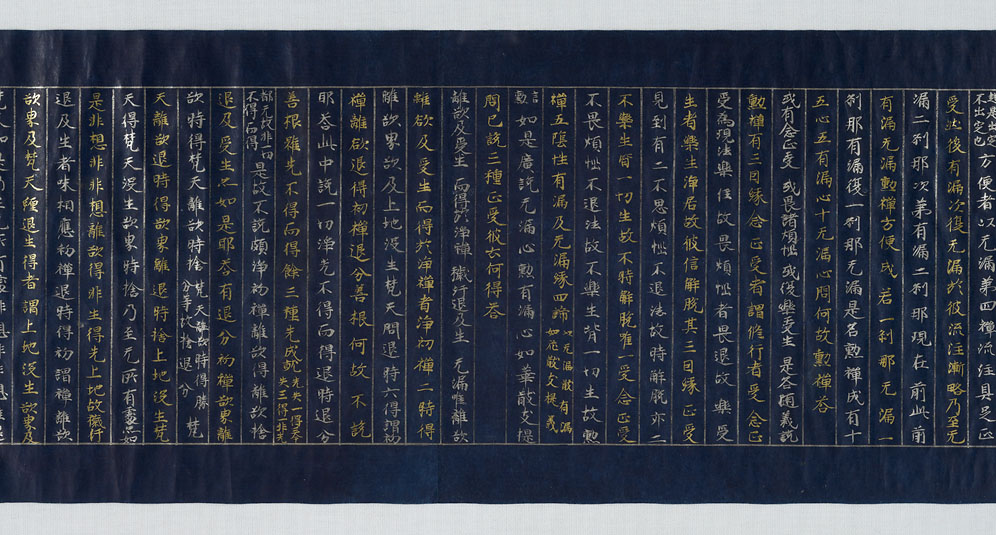 方便者以无漏第四禪流注具足正
受然後有漏次復无漏於彼流注漸略乃至无
漏二刹那次第有漏二刹那現在前此前
有漏无漏勳禪方便成若一刹那无漏一
刹那有漏復一刹那无漏是名勳禪成有十
五心五有漏心十无漏心問何故勳禪答
或有念正受 或畏諸煩惱 或復樂受生 是答隨義説
勳禪有三因緣念正受者謂脩行者受念正
受為現法樂住故畏煩惱者畏退故樂受
生者樂生淨居故彼信解脫具三因緣受
見到有二不思煩惱不退法故時解脫亦二
不樂生背一切生故不時解脫唯一受念正受
不畏煩惱不退法故不樂生背一切生故勳
禪五陰性有漏及无漏緣四諦
如是廣說无漏心勳有漏心如華散支提
問已說三種正受彼云何得答
離欲及受生 而得於淨禪 穢汙退及生 无漏唯離欲
離欲及受生而得於淨禪者淨初禪二時得
離欲界欲及上地沒生梵天問退時亦得謂初
禪離欲退得初禪退分善根何故不說
耶答此中說一切淨先不得而得退時退分
善根雖先不得而得餘三種先成就
不得而得 是故不說頗淨初禪離欲得離欲捨
退及受生亦如是耶答有退分初禪欲界離
欲時得梵天離欲時捨 梵天離欲時得勝分等故捨退分 梵
天離欲退時得欲界離退時捨上地沒生梵
天得梵天沒生欲界時捨乃至无所有處如
是非想非非想離欲得非生得先上地故穢汙
退及生者味相應初禪退時得初謂禪離欲
欲界及梵天纏退生得者謂上地沒生欲界及